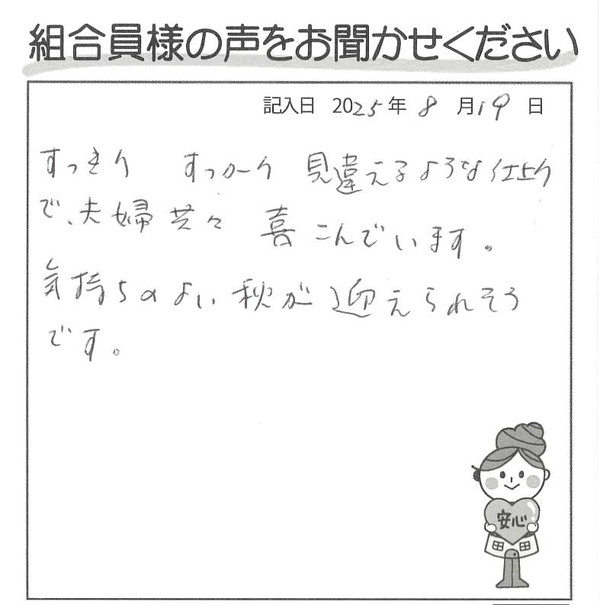 組合員様の声をお聞かせください
記入日 2025年 8 月19日
すっきり すっかり 見違えるような仕上り
で、夫婦共々 喜こんでいます。
気持ちのよい秋が迎えられそう
です。
安心